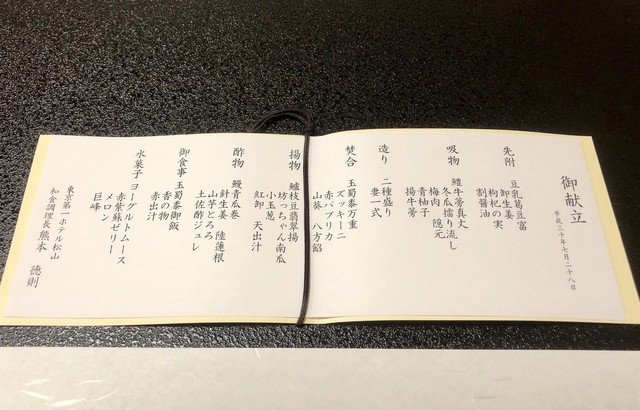 御献立
平成三十年七月二十八日
先附
豆乳葛豆富
卸生姜
枸杞の実
割醤油
吸物
鱧牛蒡真丈
冬瓜擂り流し
梅肉 隠元
青柚子
揚牛蒡
造り
二種盛り
妻一式
焚合
玉蜀黍万重
ズッキーニ
赤パプリカ
山葵 八方餡
揚物
鱸枝豆翡翠揚
坊っちゃん南瓜
小玉葱
紅卸 天出汁
酢物
鰻青瓜巻
針生姜 陸蓮根
山芋とろろ
土佐酢ジュレ
御食事
玉蜀黍御飯
香の物
赤出汁
水菓子
ヨーグルトムース
赤紫蘇ゼリー
メロン
巨峰
東京第一ホテル松山
和食調理長熊本 徳則